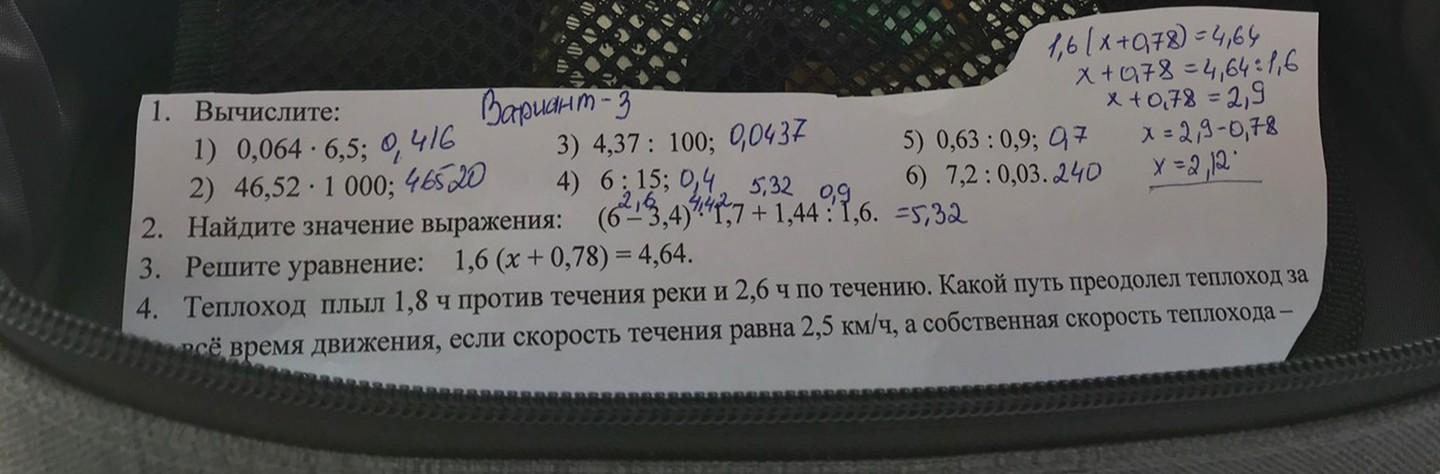 1,6(x+0,78)=4,64
x+0,78=4,64:1,6
x+0,78=2,9
x=2,9-0,78
x=2,12
Вариант-3
1. Вычислите:
1) 0,064 · 6,5; 0,416 3) 4,37 : 100; 0,0437 5) 0,63 : 0,9; 0,7
2) 46,52 · 1 000; 46520 4) 6 : 15; 0,4 6) 7,2 : 0,03. 240
2,6 4,42 5,32 0,9
2. Найдите значение выражения: (6 – 3,4) · 1,7 + 1,44 : 1,6. =5,32
3. Решите уравнение: 1,6 (x + 0,78) = 4,64.
4. Теплоход плыл 1,8 ч против течения реки и 2,6 ч по течению. Какой путь преодолел теплоход за
всё время движения, если скорость течения равна 2,5 км/ч, а собственная скорость теплохода –